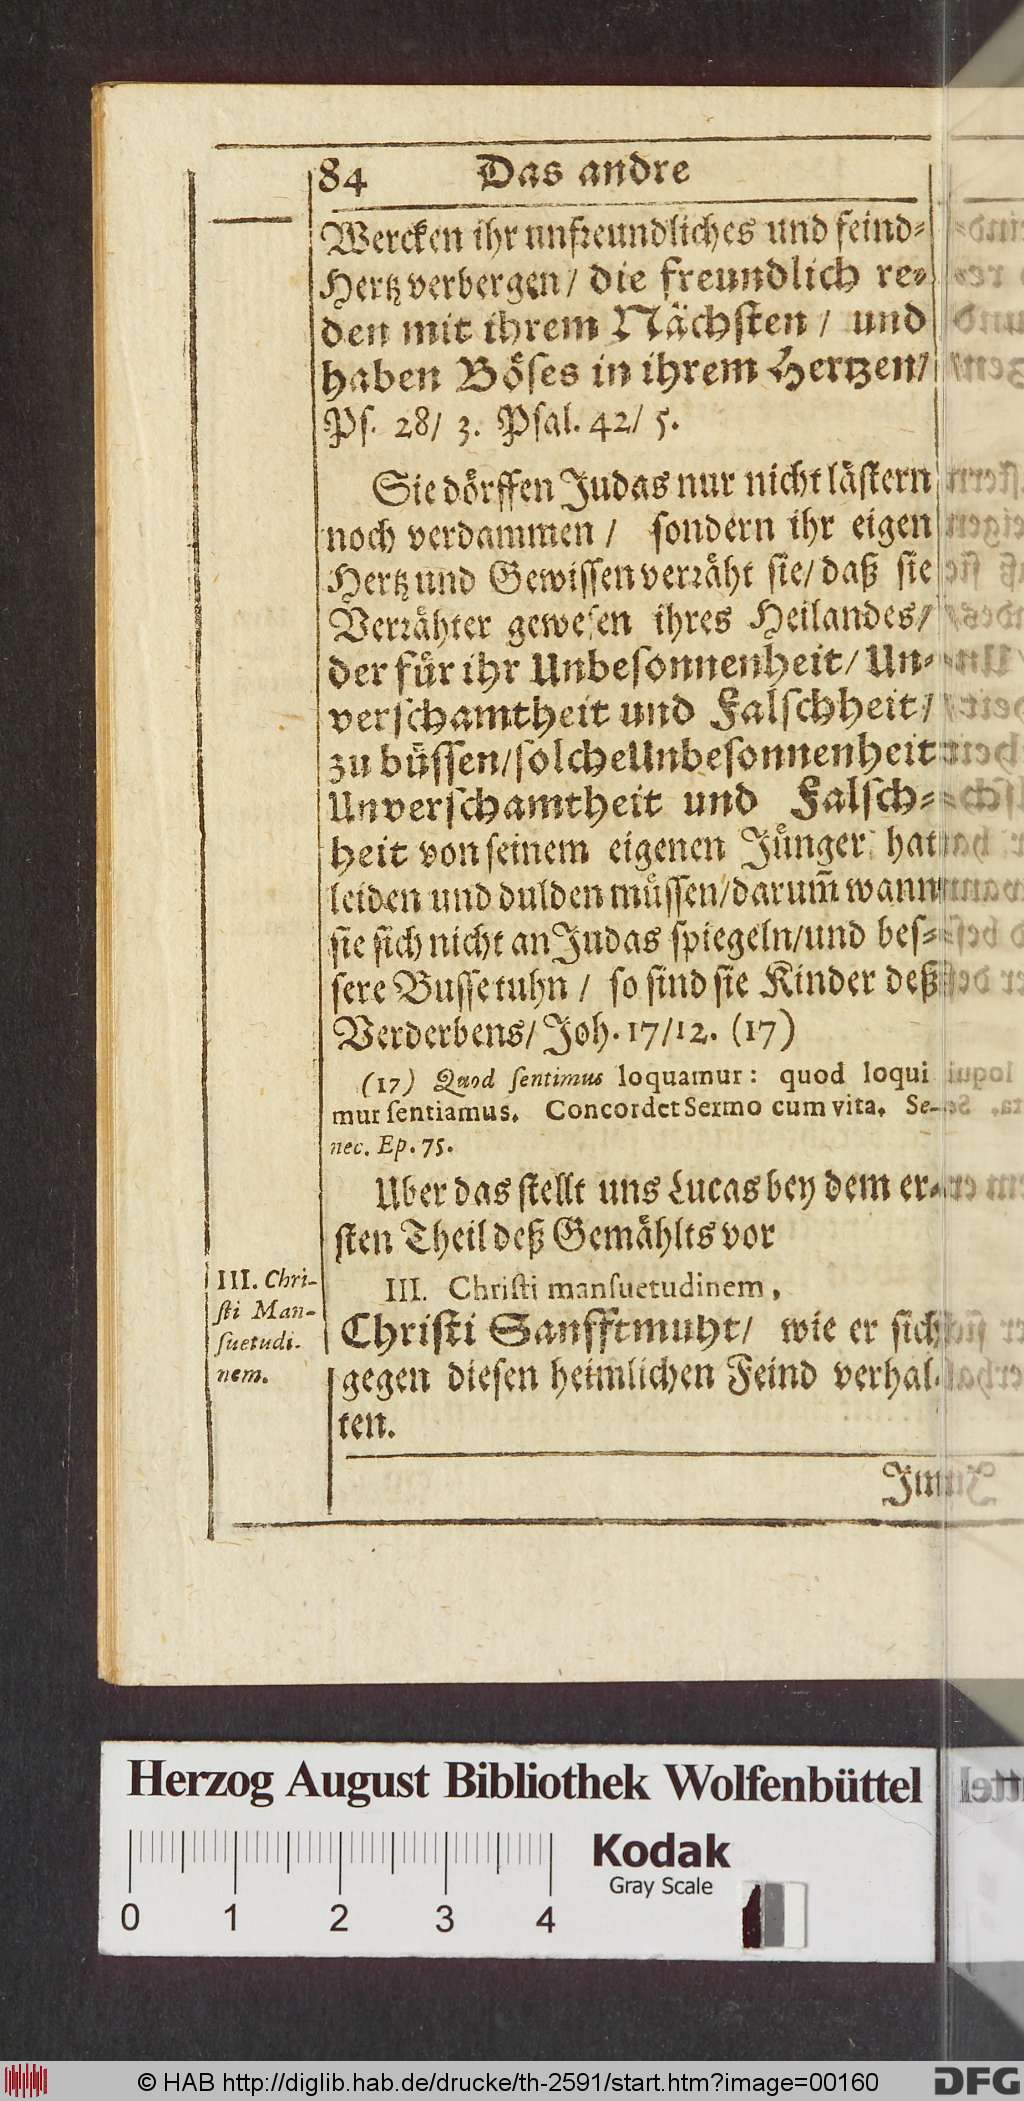 84 Das andre
Wercken ihr unfreundliches und feind-
Hertz verbergen / die freundlich re-
den mit ihrem Nächsten / und
haben Böses in ihrem Hertzen /
Ps. 28 / 3. Psal. 42 / 5.
Sie dörffen Judas nur nicht lästern
noch verdammen / sondern ihr eigen
Hertz und Gewissen verräht sie / daß sie
Verrähter gewesen ihres Heilandes /
der für ihr Unbesonnenheit / Un-
verschamtheit und Falschheit /
zu büssen / solche Unbesonnenheit
Unverschamtheit und Falsch-
heit von seinem eigenen Jünger hat
leiden und dulden müssen / darum̄ wann
sie sich nicht an Judas spiegeln / und bes-
sere Busse tuhn / so sind sie Kinder deß
Verderbens / Joh. 17 / 12. (17)
(17) Quod sentimus loquamur: quod loqui
mur sentiamus. Concordet Sermo cum vita. Se-
nec. Ep. 75.
Uber das stellt uns Lucas bey dem er-
sten Theil deß Gemählts vor
III. Christi mansuetudinem,
III. Chri-
sti Man-
suetudi-
nem.
Christi Sanfftmuht / wie er sich
gegen diesen heimlichen Feind verhal-
ten.
Herzog August Bibliothek Wolfenbüttel
Kodak
Gray Scale
0 1 2 3 4
© HAB http://diglib.hab.de/drucke/th-2591/start.htm?image=00160
DFG